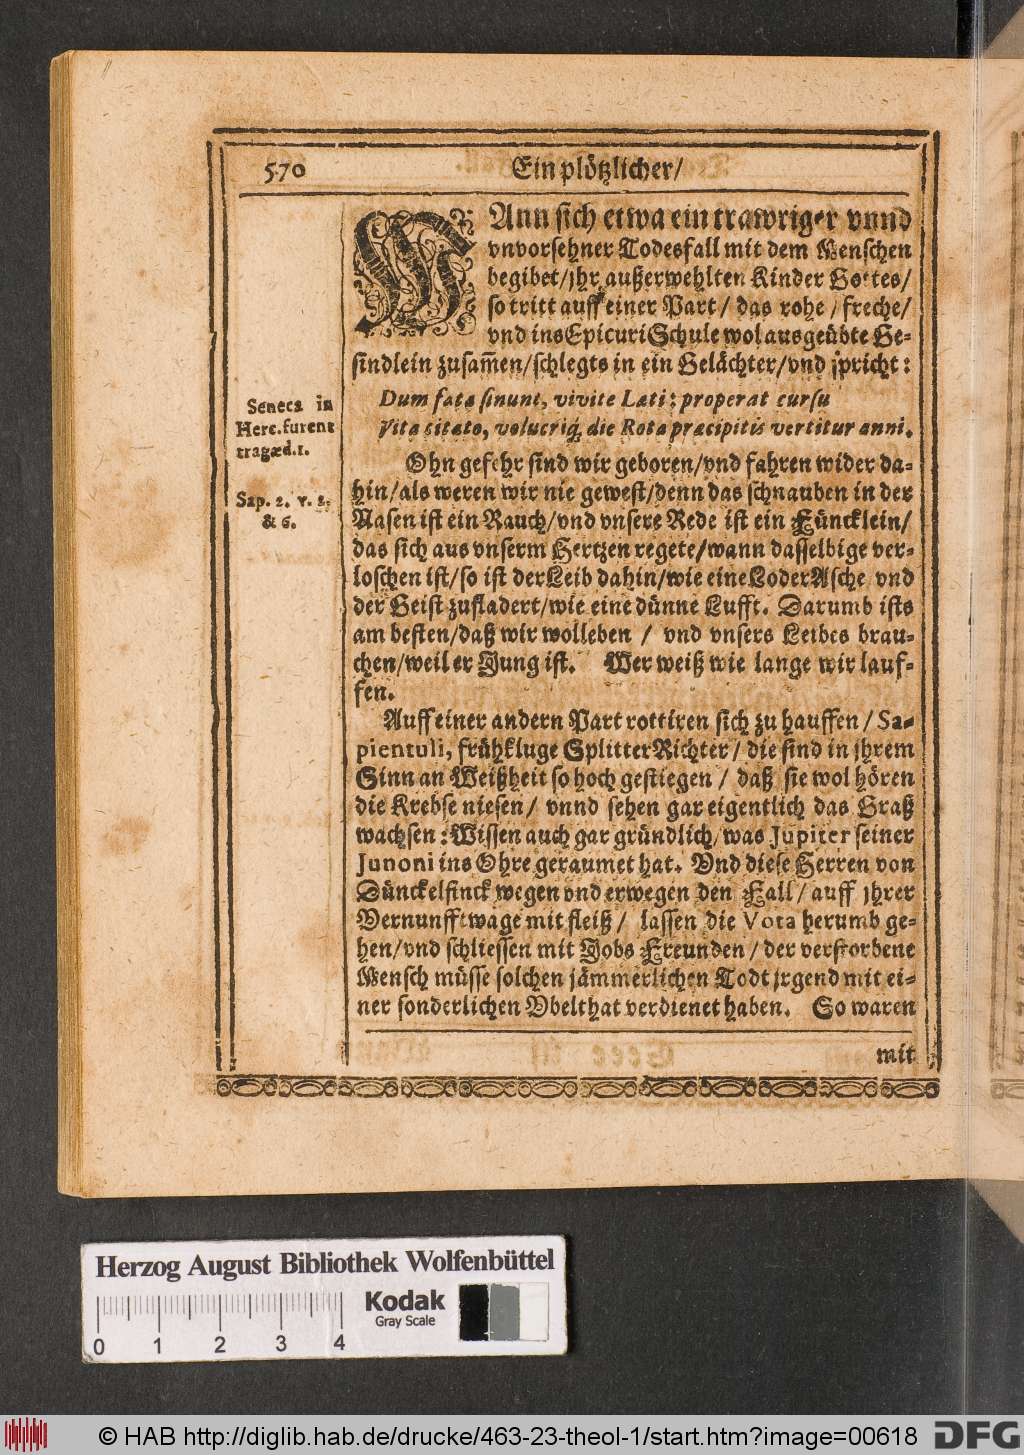 570
Ein plötzlicher/
WAnn sich etwa ein trawriger vnnd
vnvorsehner Todesfall mit dem Menschen
begibet/jhr außerwehlten Kinder Gottes/
so tritt auff einer Part/ das rohe/freche/
vnd ins Epicuri Schule wol ausgeübte Ge-
sindlein zusam̃en/schlegts in ein Gelächter/vnd spricht:
Dum fata sinunt, vivite Læti: properat cursu
Vita citato, volucriq́; die Rota præcipitis vertitur anni.
Seneca in
Herc. furent
tragæd.1.
Sap. 2. v. 2.
& 6.
Ohn gefehr sind wir geboren/vnd fahren wider da-
hin/als weren wir nie gewest/denn das schnauben in der
Nasen ist ein Rauch/vnd vnsere Rede ist ein Füncklein/
das sich aus vnserm Hertzen regete/wann dasselbige ver-
loschen ist/so ist der Leib dahin/wie eine Loder Asche vnd
der Geist zufladert/wie eine dünne Lufft. Darumb ists
am besten/daß wir wolleben / vnd vnsers Leibes brau-
chen/weil er Jung ist. Wer weiß wie lange wir lauf-
fen.
Auff einer andern Part rottiren sich zu hauffen/ Sa-
pientuli, frühkluge Splitter Richter/ die sind in jhrem
Sinn an Weißheit so hoch gestiegen / daß sie wol hören
die Krebse niesen/ vnnd sehen gar eigentlich das Graß
wachsen: Wissen auch gar gründlich/was Jupiter seiner
Junoni ins Ohre geraumet hat. Vnd diese Herren von
Dünckelfinck wegen vnd erwegen den Fall/ auff jhrer
Vernunfftwage mit fleiß/ lassen die Vota herumb ge-
hen/vnd schliessen mit Jobs Freunden/ der verstorbene
Mensch müsse solchen jämmerlichen Todt jrgend mit ei-
ner sonderlichen Vbelthat verdienet haben. So waren
mit
Herzog August Bibliothek Wolfenbüttel
Kodak
Gray Scale
0 1 2 3 4
© HAB http://diglib.hab.de/drucke/463-23-theol-1/start.htm?image=00618
DFG